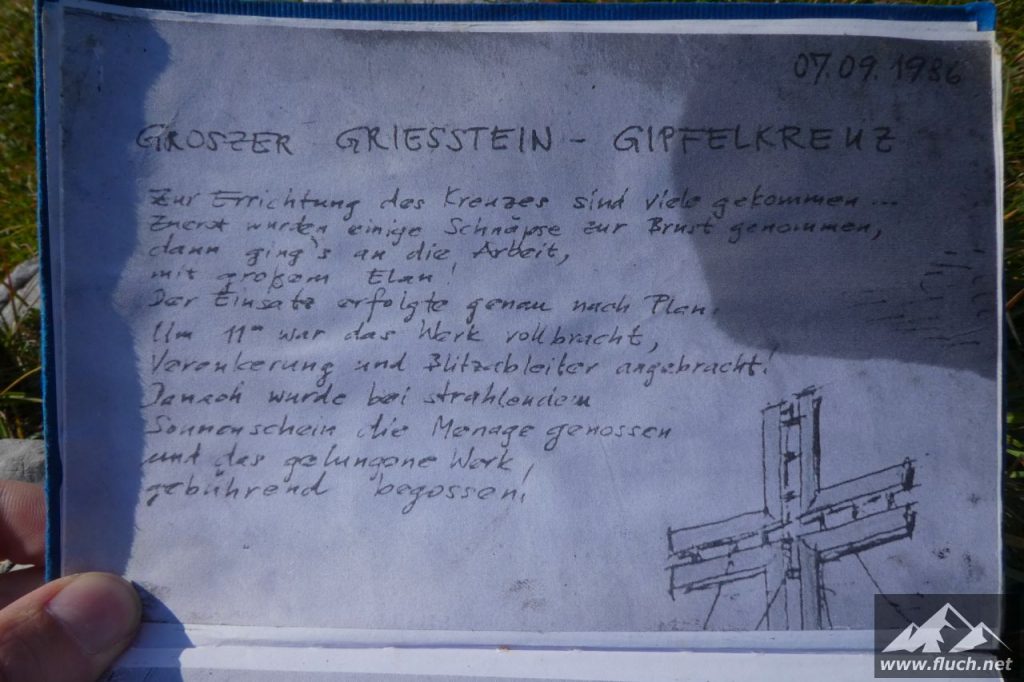 07.09.1986
GROSZER GRIESSTEIN - GIPFELKREUZ
Zur Errichtung des Kreuzes sind viele gekommen...
Zuerst wurden einige Schnäpse zur Brust genommen,
dann ging's an die Arbeit,
mit großem Elan!
Der Einsatz erfolgte genau nach Plan.
Um 11⁰⁰ war das Werk vollbracht,
Verankerung und Blitzableiter angebracht!
Danach wurde bei strahlendem
Sonnenschein die Menage genossen
und das gelungene Werk,
gebührend begossen!
www.fluch.net